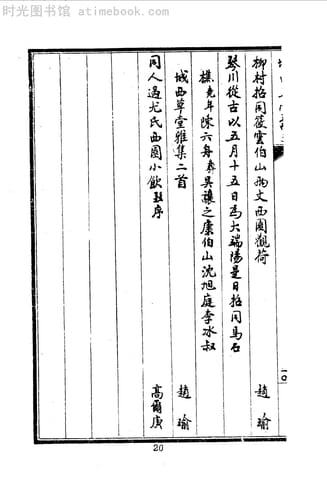 时光图书馆 - atimebook.com
柳村招同筱雲伯山两丈西園觀荷
趙瑜
琴川從古以五月十五日爲大端陽是日招同馬石
樵尭年陳六舟彝吴讓之廉伯山沈旭庭李冰叔
城西草堂雅集二首
趙瑜
同人過尤氏西園小飲並序
高爾庚
一〇
20